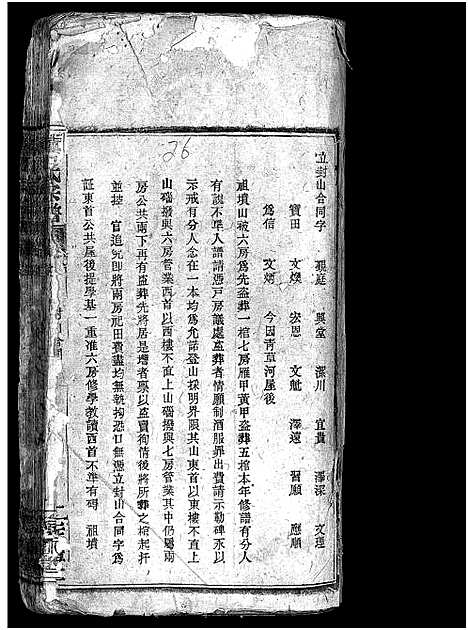 立封山合同字 親庭 興堂 濂川 宜貴 澤深 文理
寶田 文煥 宏恩 文魁 澤遠 習顧 應順
爲信 文炳 今因青草河屋後
祖墳山被六房爲先盜葬一棺七房雁甲黃甲盜葬五棺本年修譜有分人
有說不準人譜請憑戶房議處盜葬者情願制酒服罪出費請示勒碑永以
示戒有分人念在一本均各允諾登山採明界限其山東首以東樓不直上
山磘撥與六房管業西首以西樓不直上山磘撥與七房管業其中仍屬兩
房公共兩下再有盜葬先將居是墳者累以盜賣徇情後將所葬之棺起扦
並控 官追究即將兩房祀田費盡均無執拗恐口無憑立封山合同字爲
証東首公共屋後提學基一重准六房修學教讀西首不準有碍 祖墳
26
氏宗譜